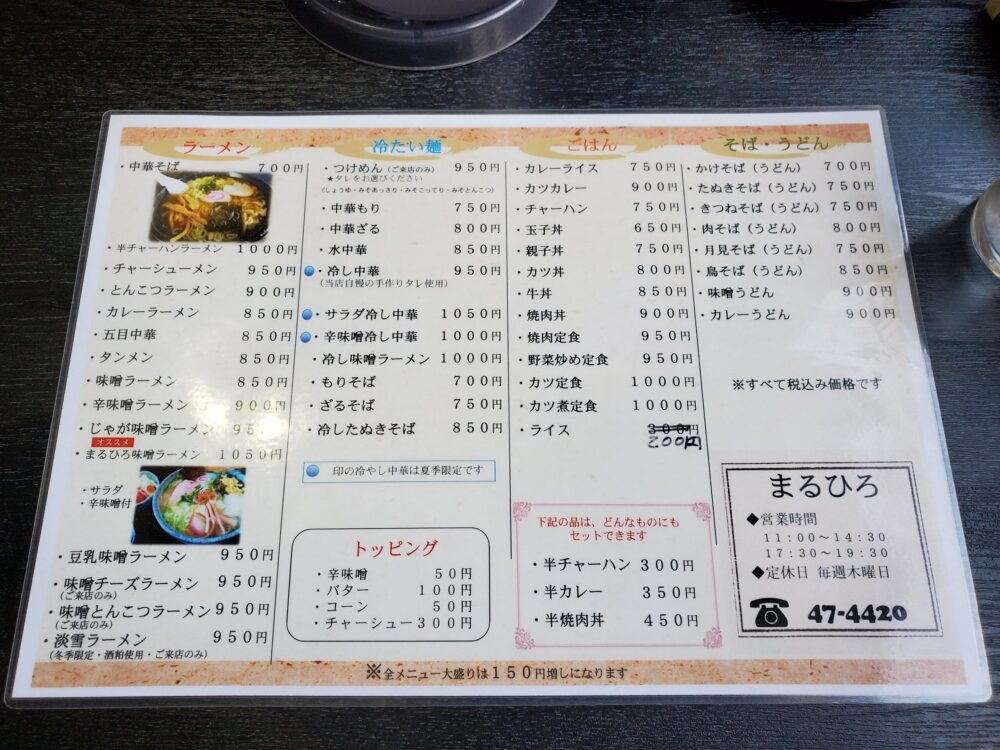 ラーメン
・中華そば 700円
・半チャーハンラーメン 1000円
・チャーシューメン 950円
・とんこつラーメン 900円
・カレーラーメン 850円
・五目中華 850円
・タンメン 850円
・味噌ラーメン 850円
・辛味噌ラーメン 900円
・じゃが味噌ラーメン 950円
オススメ
・まるひろ味噌ラーメン 1050円
・サラダ
・辛味噌付
・豆乳味噌ラーメン 950円
・味噌チーズラーメン 950円
(ご来店のみ)
・味噌とんこつラーメン 950円
(ご来店のみ)
・淡雪ラーメン 950円
(冬季限定・酒粕使用・ご来店のみ)
冷たい麺
・つけめん(ご来店のみ) 950円
★タレをお選びください
(しょうゆ・みそあっさり・みそこってり・みそとんこつ)
・中華もり 750円
・中華ざる 800円
・水中華 850円
・冷し中華 950円
(当店自慢の手作りタレ使用)
・サラダ冷し中華 1050円
・辛味噌冷し中華 1000円
・冷し味噌ラーメン 1000円
・もりそば 700円
・ざるそば 750円
・冷したぬきそば 850円
印の冷やし中華は夏季限定です
トッピング
・辛味噌 50円
・バター 100円
・コーン 50円
・チャーシュー 300円
ごはん
・カレーライス 750円
・カツカレー 900円
・チャーハン 750円
・玉子丼 650円
・親子丼 750円
・カツ丼 800円
・牛丼 850円
・焼肉丼 900円
・焼肉定食 950円
・野菜炒め定食 950円
・カツ定食 1000円
・カツ煮定食 1000円
・ライス 300円
200円
下記の品は、どんなものにも
セットできます
・半チャーハン 300円
・半カレー 350円
・半焼肉丼 450円
そば・うどん
・かけそば(うどん) 700円
・たぬきそば(うどん) 750円
・きつねそば(うどん) 750円
・肉そば(うどん) 800円
・月見そば(うどん) 750円
・鳥そば(うどん) 850円
・味噌うどん 900円
・カレーうどん 900円
※すべて税込み価格です
まるひろ
◆営業時間
11:00〜14:30
17:30〜19:30
◆定休日 毎週木曜日
☎ 47-4420
※全メニュー大盛りは150円増しになります